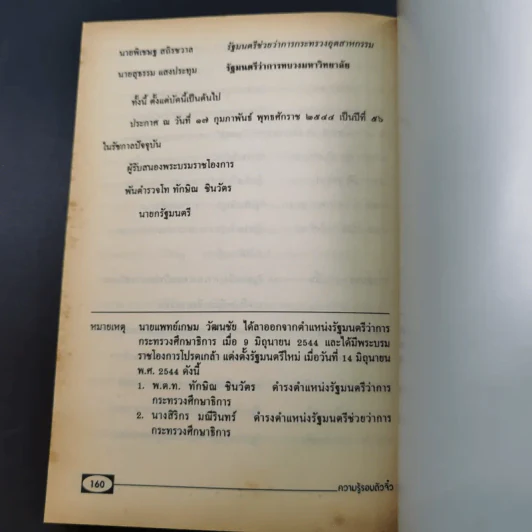 นายพิเชษฐ สถิรชวาล รัฐมนตรีช่วยว่าการกระทรวงอุตสาหกรรม
นายสุธรรม แสงประทุม รัฐมนตรีว่าการทบวงมหาวิทยาลัย
ทั้งนี้ ตั้งแต่บัดนี้เป็นต้นไป
ประกาศ ณ วันที่ ๑๗ กุมภาพันธ์ พุทธศักราช ๒๕๔๔ เป็นปีที่ ๕๖
ในรัชกาลปัจจุบัน
ผู้รับสนองพระบรมราชโองการ
พันตำรวจโท ทักษิณ ชินวัตร
นายกรัฐมนตรี
หมายเหตุ นายแพทย์เกษม วัฒนชัย ได้ลาออกจากตำแหน่งรัฐมนตรีว่าการ
กระทรวงศึกษาธิการ เมื่อ 9 มิถุนายน 2544 และได้มีพระบรม
ราชโองการโปรดเกล้า แต่งตั้งรัฐมนตรีใหม่ เมื่อวันที่ 14 มิถุนายน
พ.ศ. 2544 ดังนี้
1. พ.ต.ท. ทักษิณ ชินวัตร ดำรงตำแหน่งรัฐมนตรีว่าการ
กระทรวงศึกษาธิการ
2. นางสิริกร มณีรินทร์ ดำรงตำแหน่งรัฐมนตรีช่วยว่าการ
กระทรวงศึกษาธิการ
160
ความรู้รอบตัวจิ๋ว